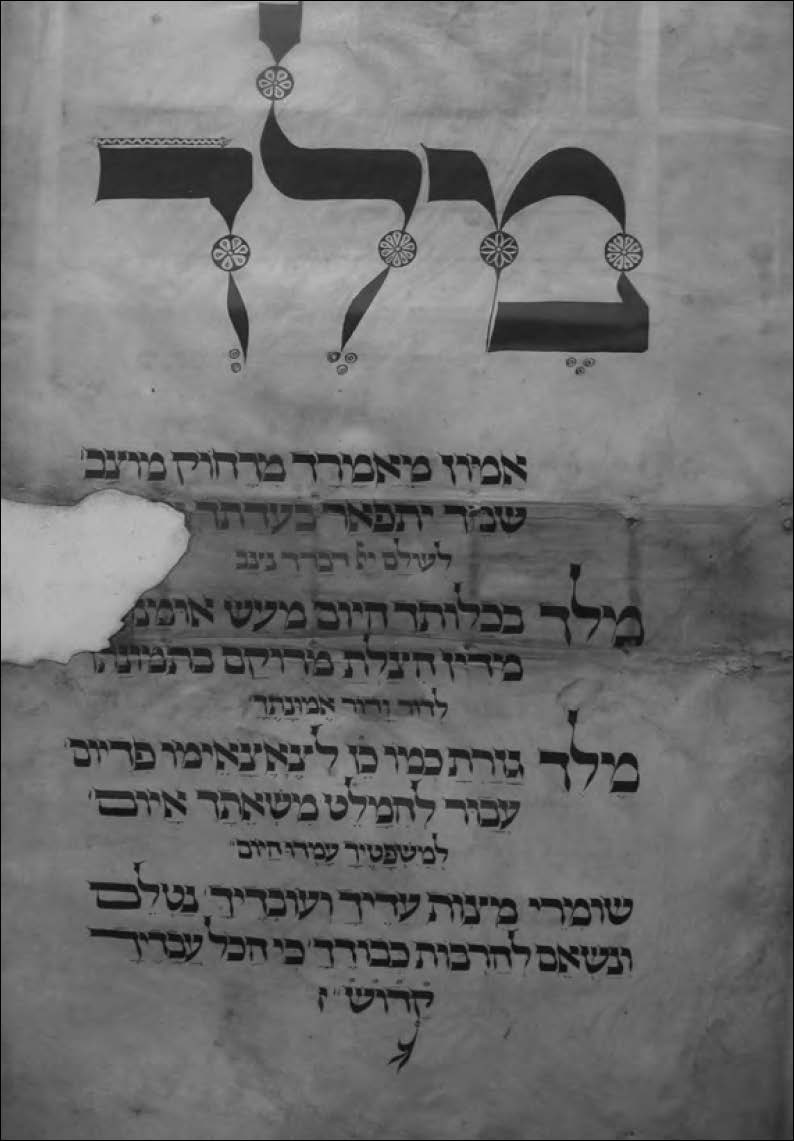 מלך
אמון מאמרך מרחוק מוצב
שמך יתפאר בעדתך
לעולם יי דברך ניצב
מלך ככלותך היום מעש
מדין הצלת מרוקם
לדור ודור אמונתך
מלך גזרת כמו כן לצאצאימו פדיום
עבור להמלט משאתך איום
למשפטיך עמדו היום
שומרי מצות עדיך ועובדיך נטלם
ונשאם להרבות כבודך כי הכל עבדיך
קדוש